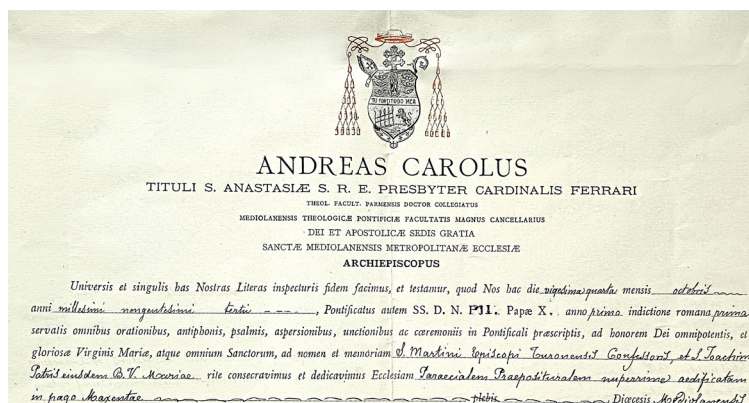 TU FORTITUDO MEA
ANDREAS CAROLUS
TITULI S. ANASTASIÆ S. R. E. PRESBYTER CARDINALIS FERRARI
THEOL. FACULT. PARMENSIS DOCTOR COLLEGIATUS
MEDIOLANENSIS THEOLOGICÆ PONTIFICIÆ FACULTATIS MAGNUS CANCELLARIUS
DEI ET APOSTOLICÆ SEDIS GRATIA
SANCTÆ MEDIOLANENSIS METROPOLITANÆ ECCLESIÆ
ARCHIEPISCOPUS
Universis et singulis has Nostras Literas inspecturis fidem facimus, et testamur, quod Nos hac die vigesima quarta mensis octobris
anni millesimi nongentesimi tertii - - - , Pontificatus autem SS. D. N. PII. Papæ X. anno primo indictione romana prima
servatis omnibus orationibus, antiphonis, psalmis, aspersionibus, unctionibus ac cæremoniis in Pontificali præscriptis, ad honorem Dei omnipotentis, et
gloriosæ Virginis Mariæ, atque omnium Sanctorum, ad nomen et memoriam S. Martini Episcopi Turonensis Confessoris, et S. Joachim
Patris eiusdem B. V. Mariae rite consecravimus et dedicavimus Ecclesiam Paraecialem Praeposituralem nuperrime aedificatam
in pago Maxentae plebis Diœcesis Mediolanensis